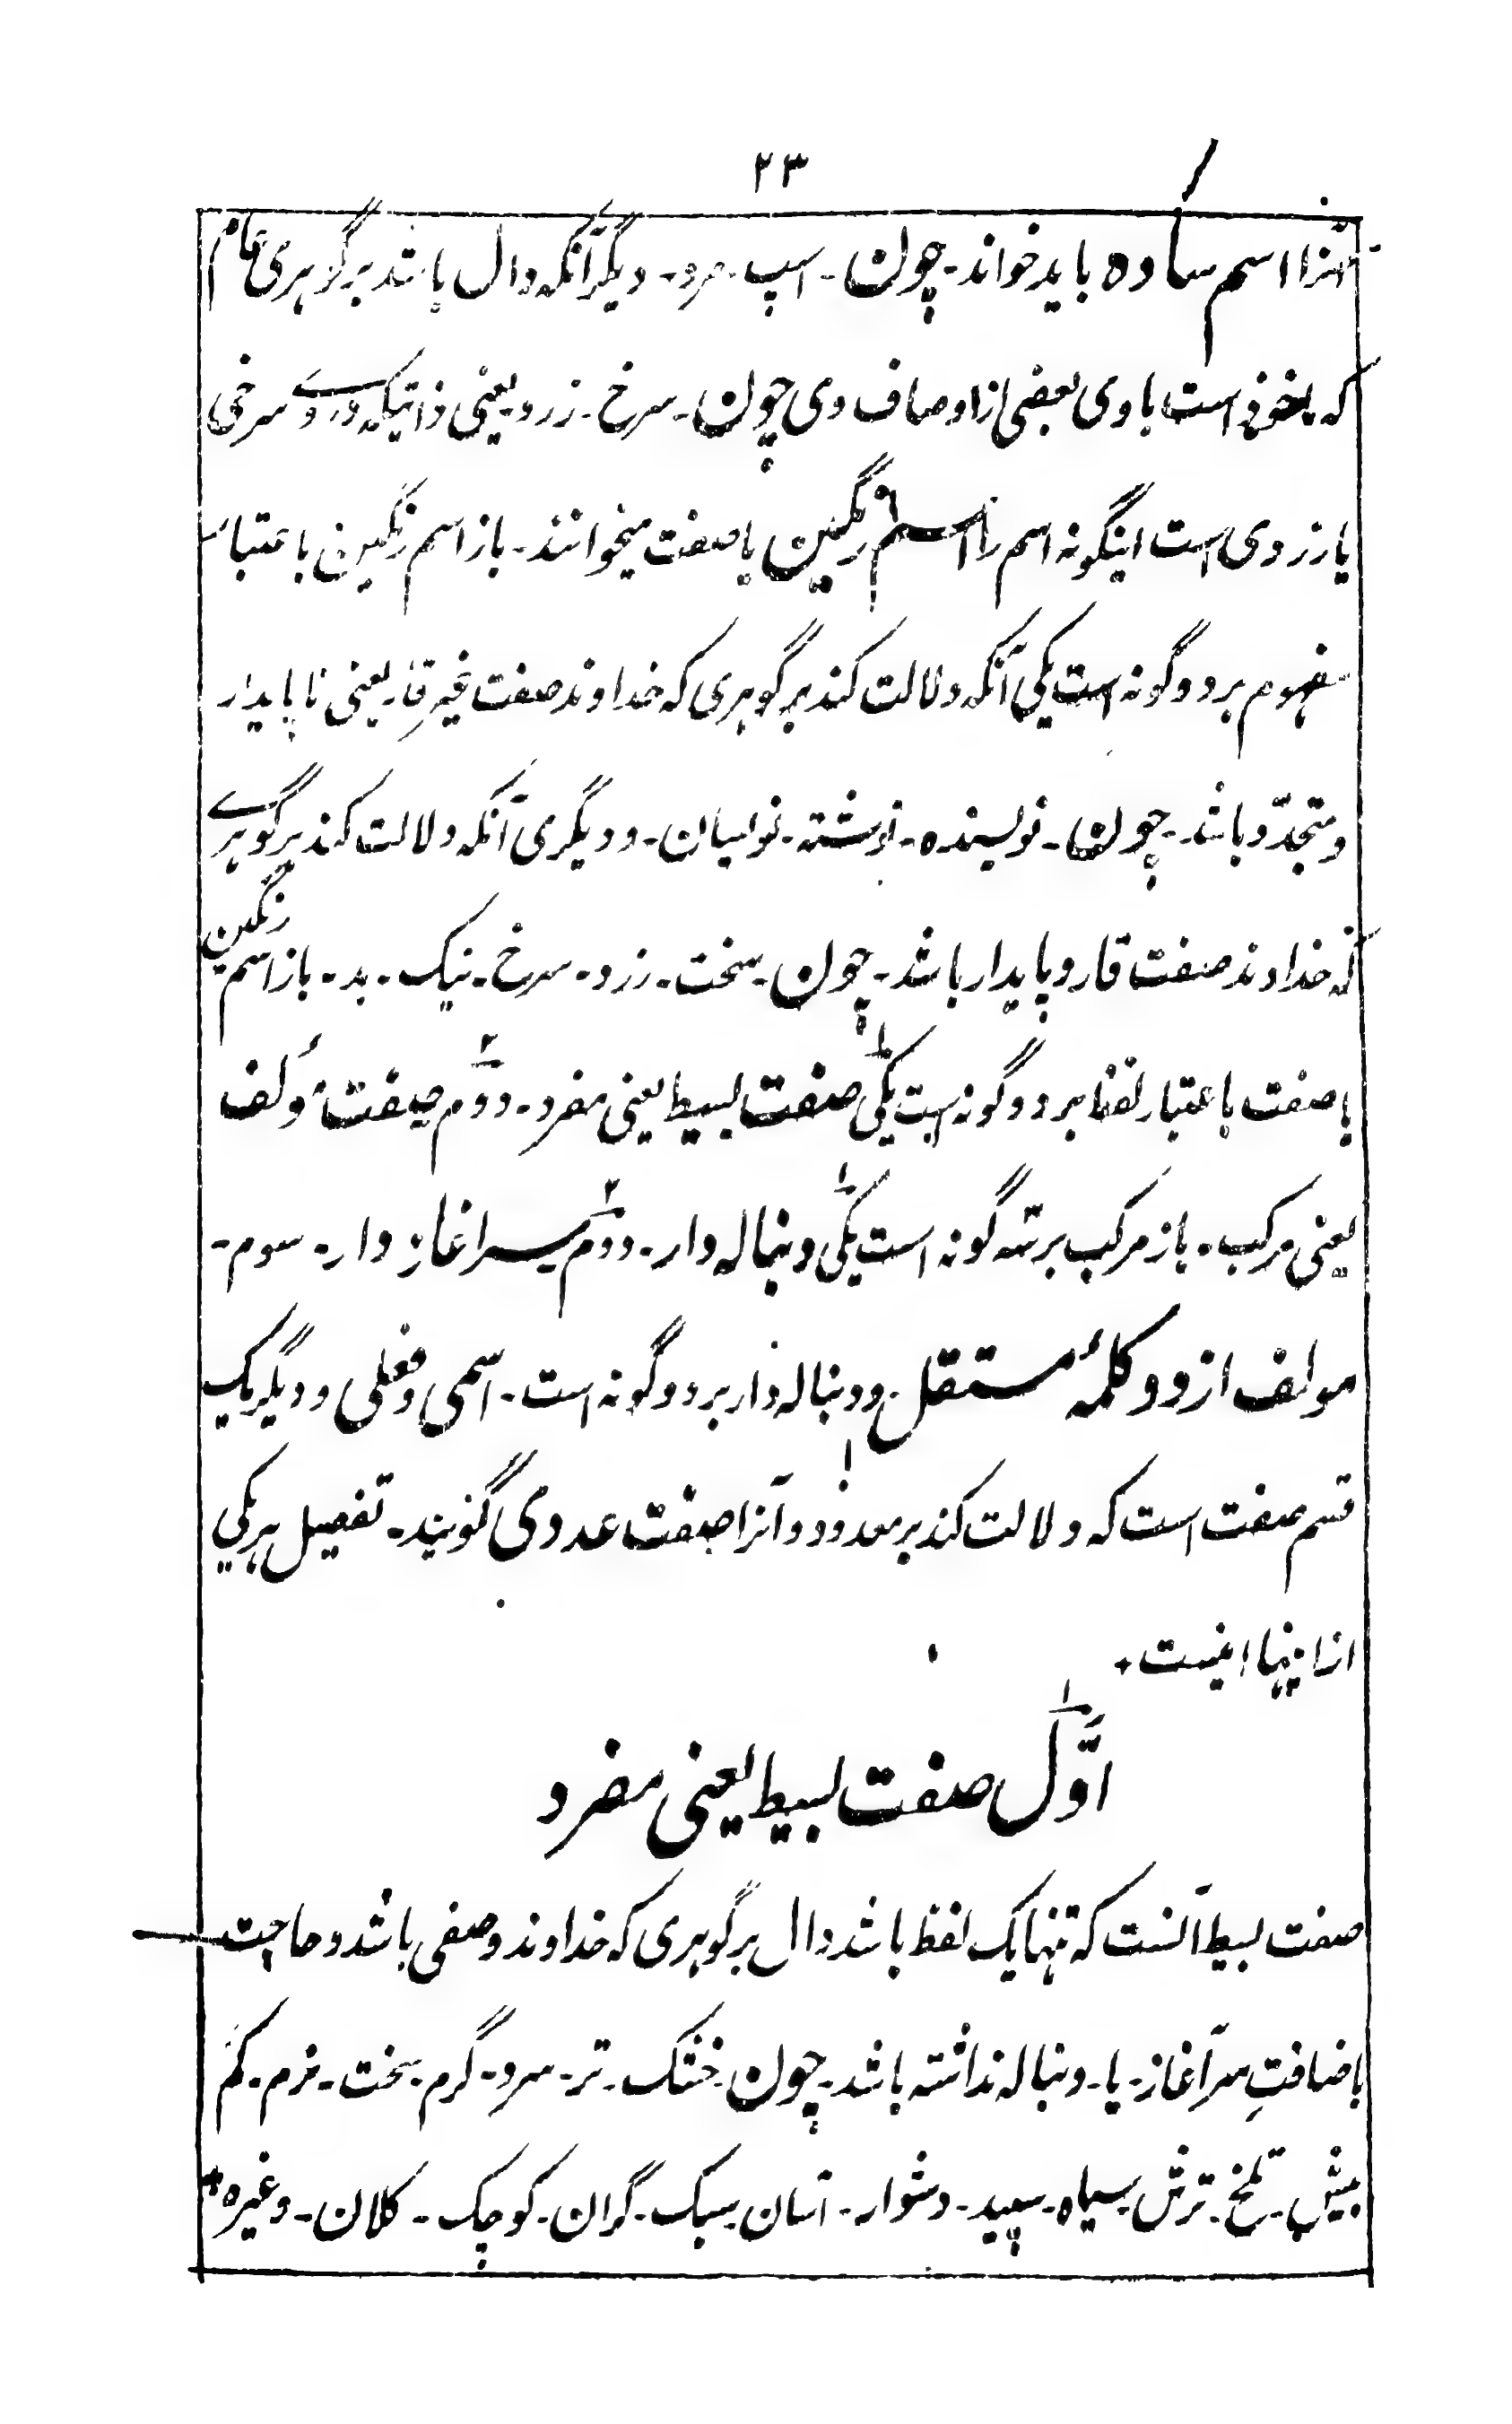 ۲۳
لهذا اسم ساده باید خواند۔ چون۔ اسپ۔ مرد۔ دیگر آنکه دال باشد بر گوهری عام
که ملحوظ است با وی بعضی از اوصاف وی چون۔ سرخ۔ زرد۔ یعنی ذاتیکه دروے سرخی
یا زردی است اینگونه اسم را اسم رنگین یا صفت میخوانند۔ باز اسم رنگین باعتبار
مفهوم بر دو گونه است یکی آنکه دلالت کند بر گوهری که خداوند صفت غیر قار یعنی نا پایدار
و متجدّد باشد۔ چون۔ نویسنده۔ نوشته۔ نویسان۔ و دیگری آنکه دلالت کند بر گوهرے
که خداوند صفت قار و پایدار باشد۔ چون۔ سخت۔ زرد۔ سرخ۔ نیک۔ بد۔ باز اسم رنگین
یا صفت باعتبار لفظ بر دو گونه است یکی صفت بسیط یعنی مفرد۔ دوّم صفت مؤلف
یعنی مرکب۔ باز مرکب بر سه گونه است یکی دنباله دار۔ دوّم سر آغاز دار۔ سوم۔
مولف از دو کلمۂ مستقل۔ و دنباله دار بر دو گونه است۔ اسمی و فعلی و دیگر یک
قسم صفت است که دلالت کند بر معدود و آنرا صفت عددی گویند۔ تفصیل هر یکی
از اینها اینست۔
اوّل صفت بسیط یعنی مفرد
صفت بسیط آنست که تنها یک لفظ باشد دال بر گوهری که خداوند وصفی باشد و حاجت
باضافتِ سر آغاز۔ یا۔ دنباله نداشته باشد۔ چون۔ خشک۔ تر۔ سرد۔ گرم۔ سخت۔ نرم۔ کم
بیش۔ تلخ۔ ترش۔ سیاه۔ سپید۔ دشوار۔ آسان۔ سبک۔ گران۔ کوچک۔ کلان۔ وغیره